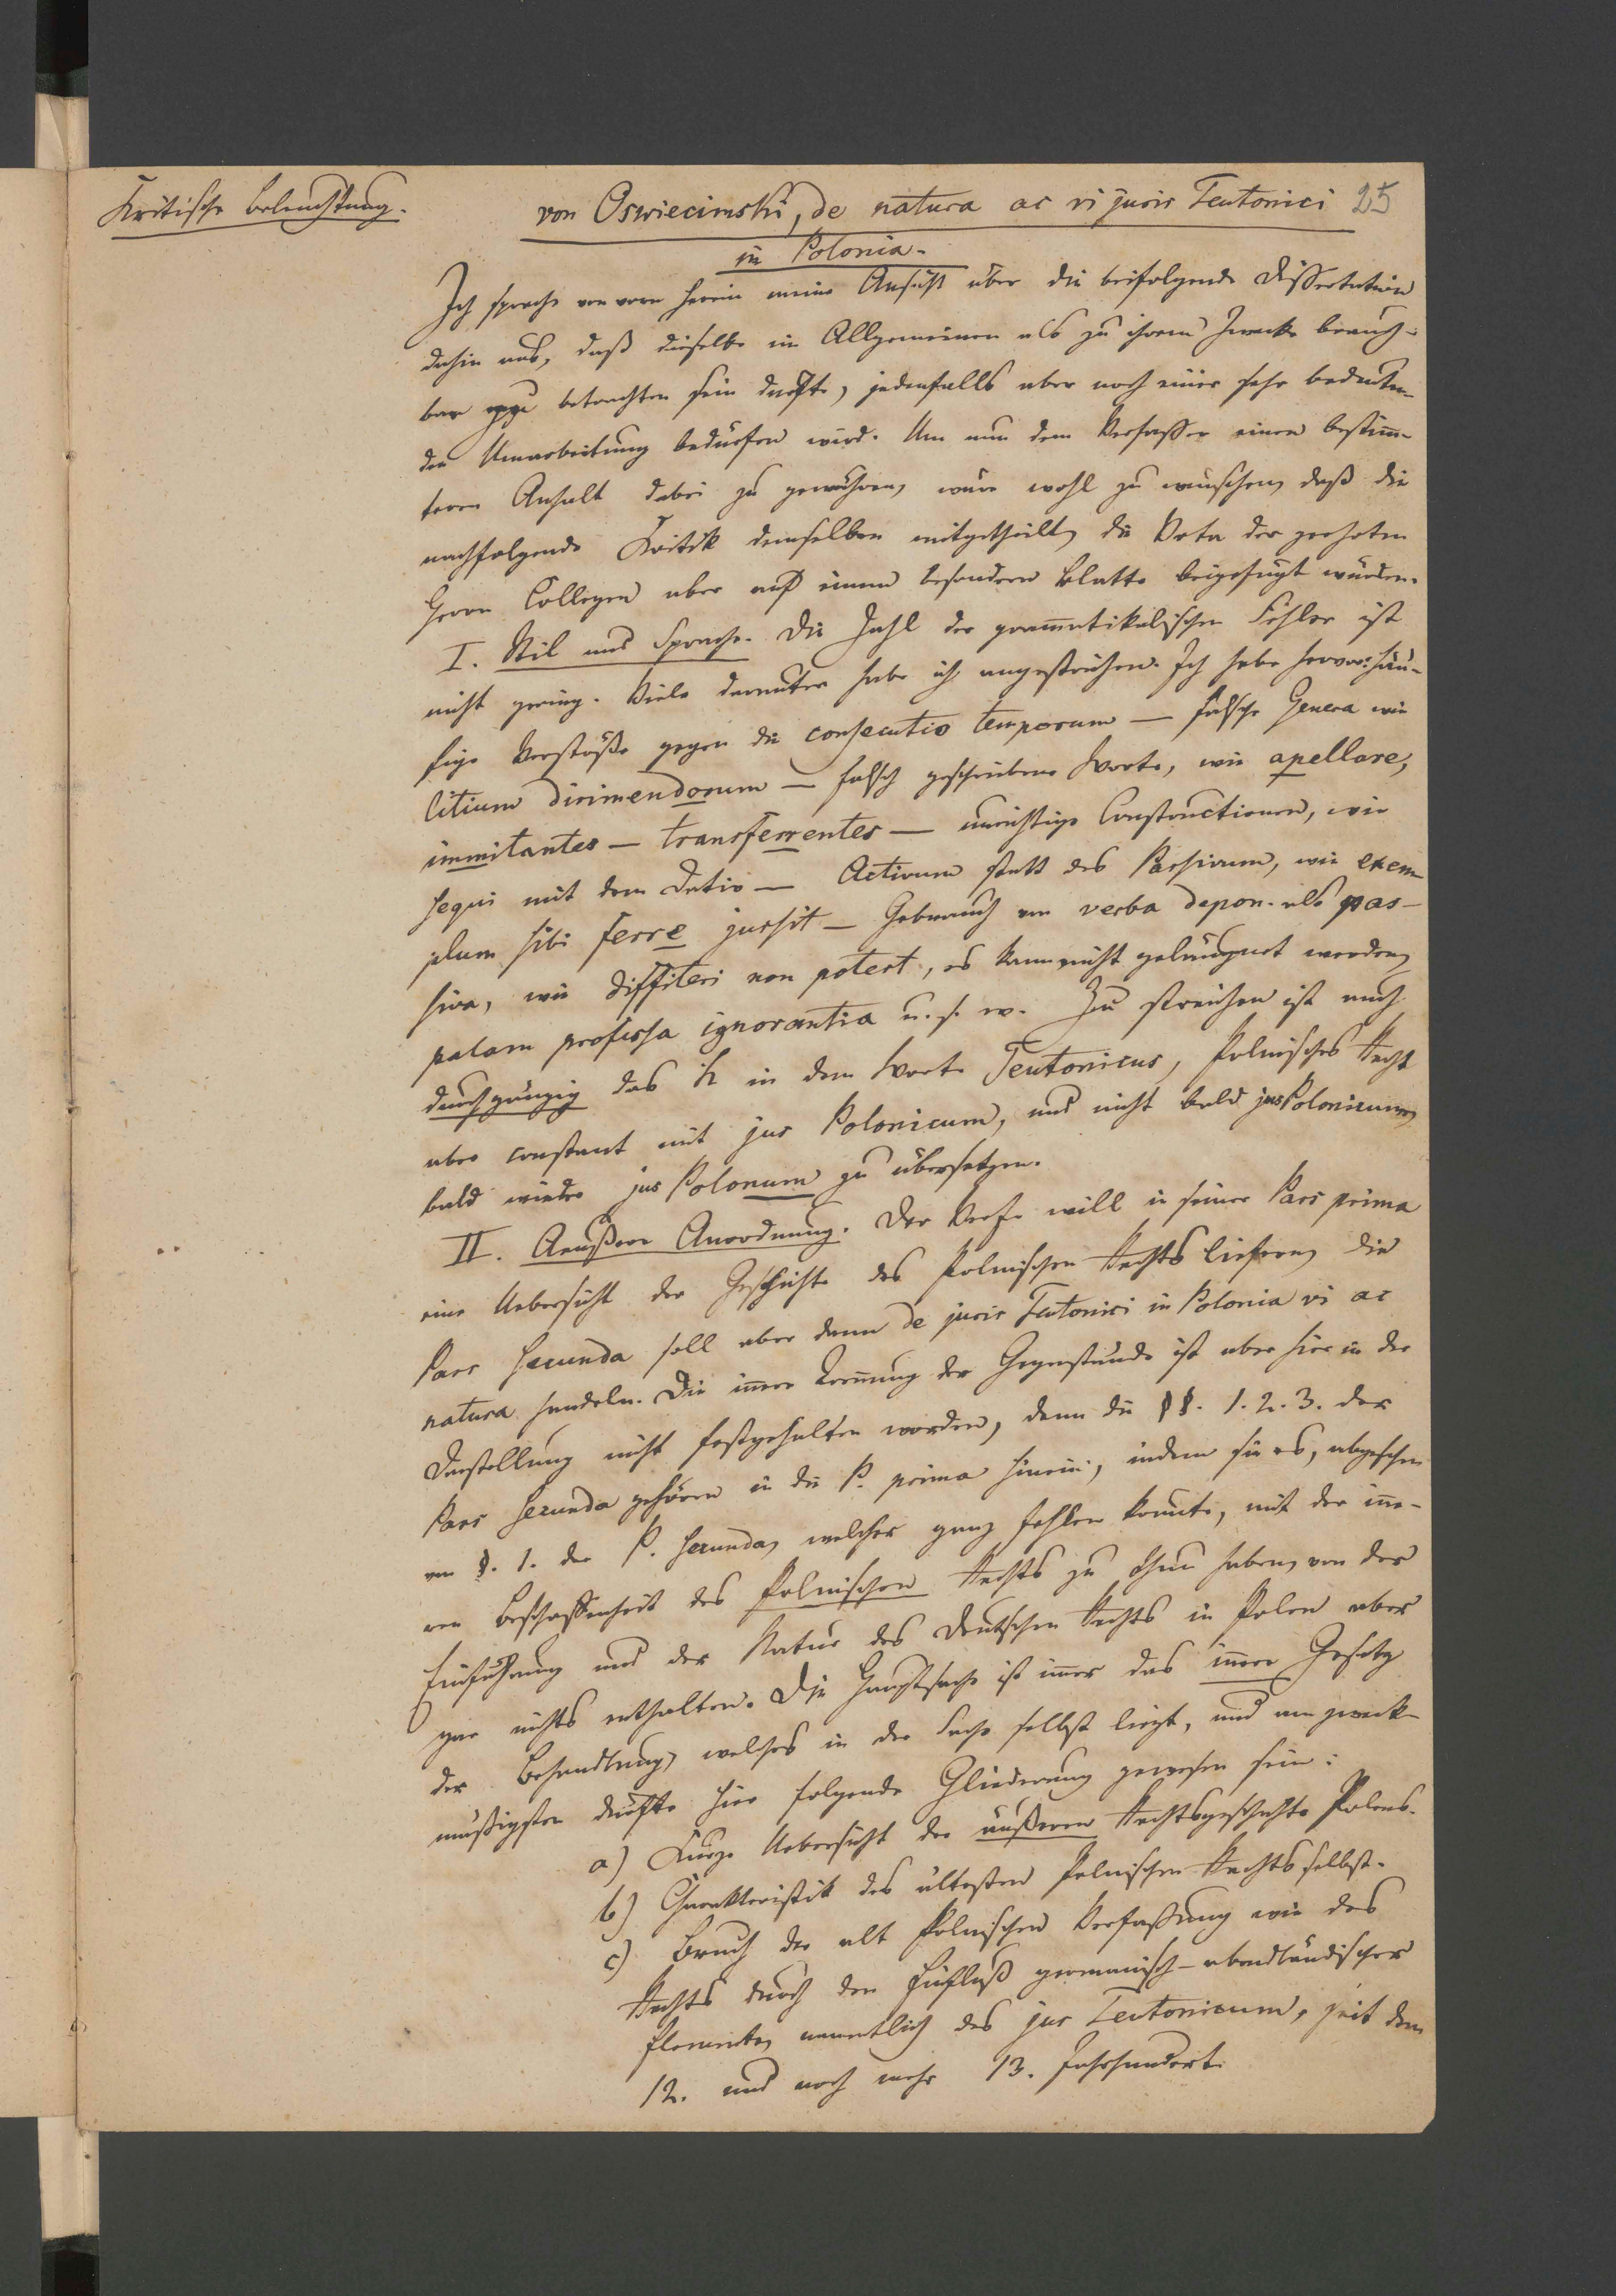 Kritische Beleuchtung.
von Oswiecimski, de natura ac vi juris Teutonici 25
in Polonia.
Ich spreche von vorn herein meine Ansicht über die beifolgende Dissertation
dahin aus, daß dieselbe im Allgemeinen als zu ihrem Zwecke brauch-
bar zu betrachten sein dürfte, jedenfalls aber noch einer sehr bedeuten-
den Umarbeitung bedürfen wird. Um nun dem Verfasser einen bestim̄-
teren Anhalt dabei zu gewähren, wäre wohl zu wünschen, daß die
nachfolgende Kritik demselben mitgetheilt, die Vota der geehrten
Herrn Collegen aber auf einem besondern Blatte beigefügt würden.
I. Stil und Sprache. Die Zahl der gram̄atikalischen Fehler ist
nicht gering. Viele darunter habe ich angestrichen. Ich hebe hervor: häu-
fige Verstöße gegen die consecutio temporum — falsche Genera wie
litium dirimendorum — falsch geschriebene Worte, wie apellare,
immitantes — transferrentes — unrichtige Constructionen, wie
sequi mit dem Dativ — Activum statt des Passivum, wie exem-
plum sibi ferre jussit — Gebrauch von verba depon. als pas-
siva, wie diffiteri non potest, es kann nicht geläugnet werden,
palam professa ignorantia u. s. w. Zu streichen ist auch
durchgängig das h in dem Worte Teutonicus, Polnisches Recht
aber constant mit jus Polonicum, und nicht bald jus Polonicum,
bald wieder jus Polonum zu übersetzen.
II. Aeußere Anordnung. Der Verf. will in seiner Pars prima
eine Uebersicht der Geschichte des Polnischen Rechts liefern, die
Pars secunda soll aber dann de juris Teutonici in Polonia vi ac
natura handeln. Die im̄ere Trennung der Gegenstände ist aber hier in der
Darstellung nicht festgehalten worden, denn die §§. 1. 2. 3. der
Pars secunda gehören in die P. prima hinein, indem sie es, abgesehen
von §. 1. der P. secunda, welcher ganz fehlen konnte, mit der in̄e-
ren Beschaffenheit des Polnischen Rechts zu thun haben, von der
Einführung und der Natur des Deutschen Rechts in Polen aber
gar nichts enthalten. Die Hauptsache ist im̄er das innere Gesetz
der Behandlung, welches in der Sache selbst liegt, und am zweck-
mäßigsten dürfte hier folgende Gliederung gewesen sein:
a) Kurze Uebersicht der äußeren Rechtsgeschichte Polens.
b) Charakteristik des ältesten Polnischen Rechts selbst.
c) Bruch der alt Polnischen Verfassung wie des
Rechts durch den Einfluß germanisch-abendländischer
Elemente, namentlich des jus Teutonicum, seit dem
12. und noch mehr 13. Jahrhundert.